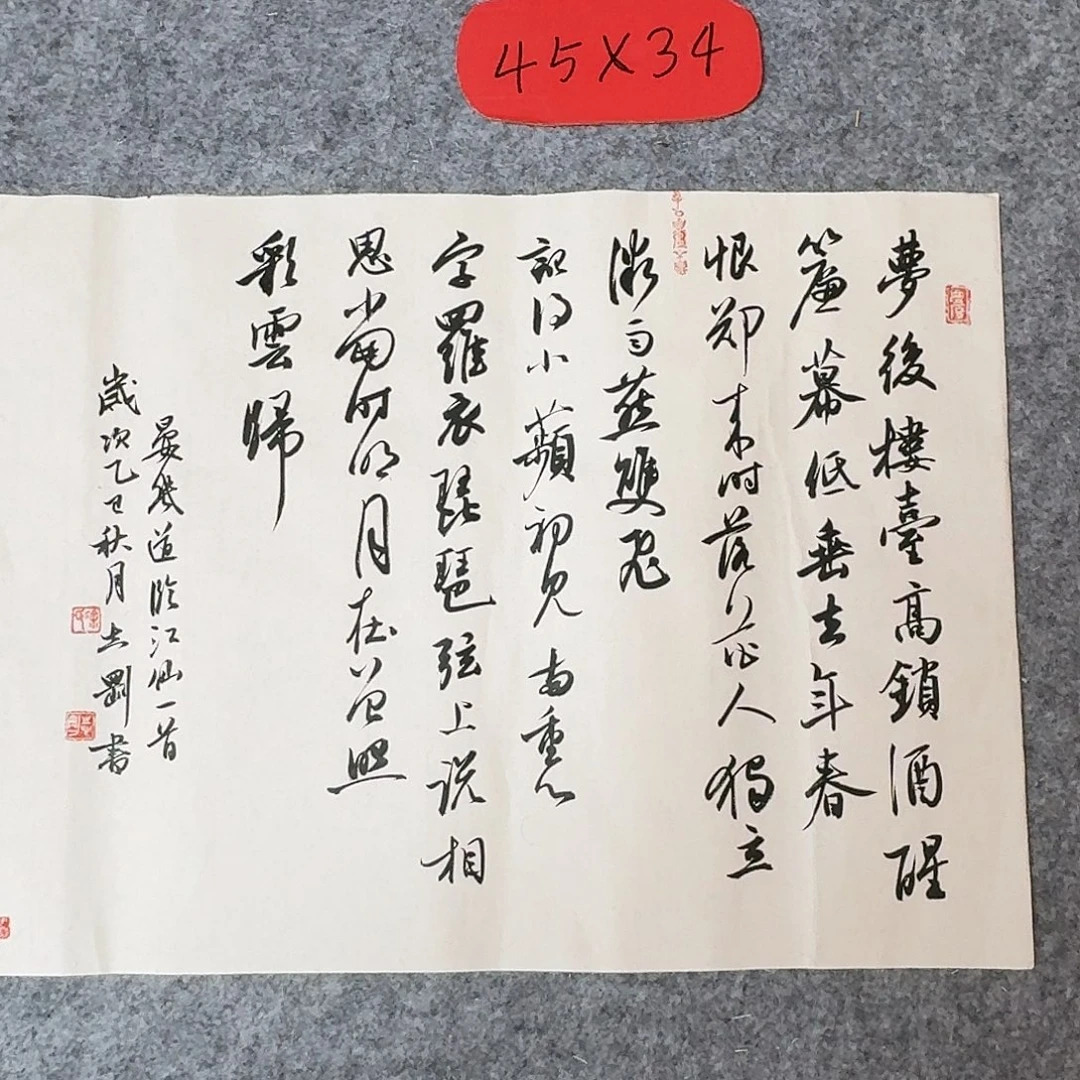 45X34
夢後樓臺高鎖酒醒
簾幕低垂去年春
恨郤來时落花人獨立
微雨燕雙飛
記得小蘋初見两重心
字羅衣琵琶弦上说相
思當时明月在曾照
彩雲歸
晏幾道臨江仙一首
歲次乙丑秋月志剛書